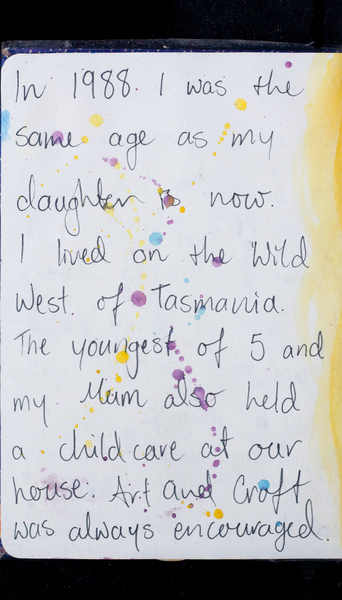 In 1988. I was the
same age as my
daughter is now.
I lived on the Wild
West. of Tasmania.
The youngest of 5 and
my. Mum also held
a child care at our
house. Art and Craft
was always encouraged.